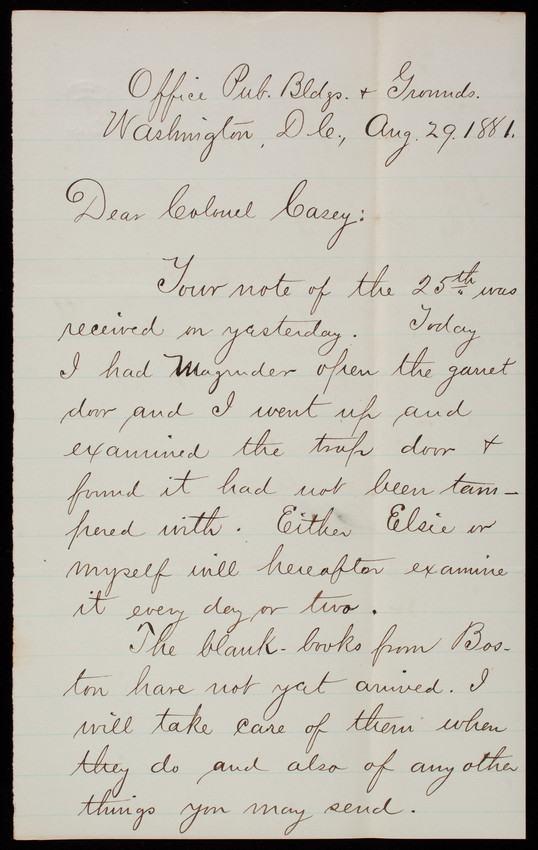 Office Pub. Bldgs. & Grounds.
Washington, D.C., Aug. 29. 1881.
Dear Colonel Casey:
Your note of the 25th was
received on yesterday. Today
I had Magruder open the garret
door and I went up and
examined the trap door &
found it had not been tam-
pered with. Either Elsie or
myself will hereafter examine
it every day or two.
The blank-books from Bos-
ton have not yet arrived. I
will take care of them when
they do and also of any other
things you may send.